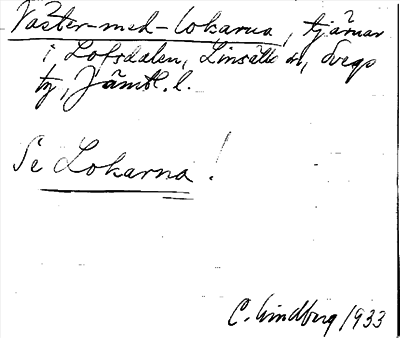 Väster-med-Lokarna, tjärnar
i Lofsdalen, Linsälls sn, Svegs
tg, Jämtl. l.
Se Lokarna!
C. Lindberg 1933